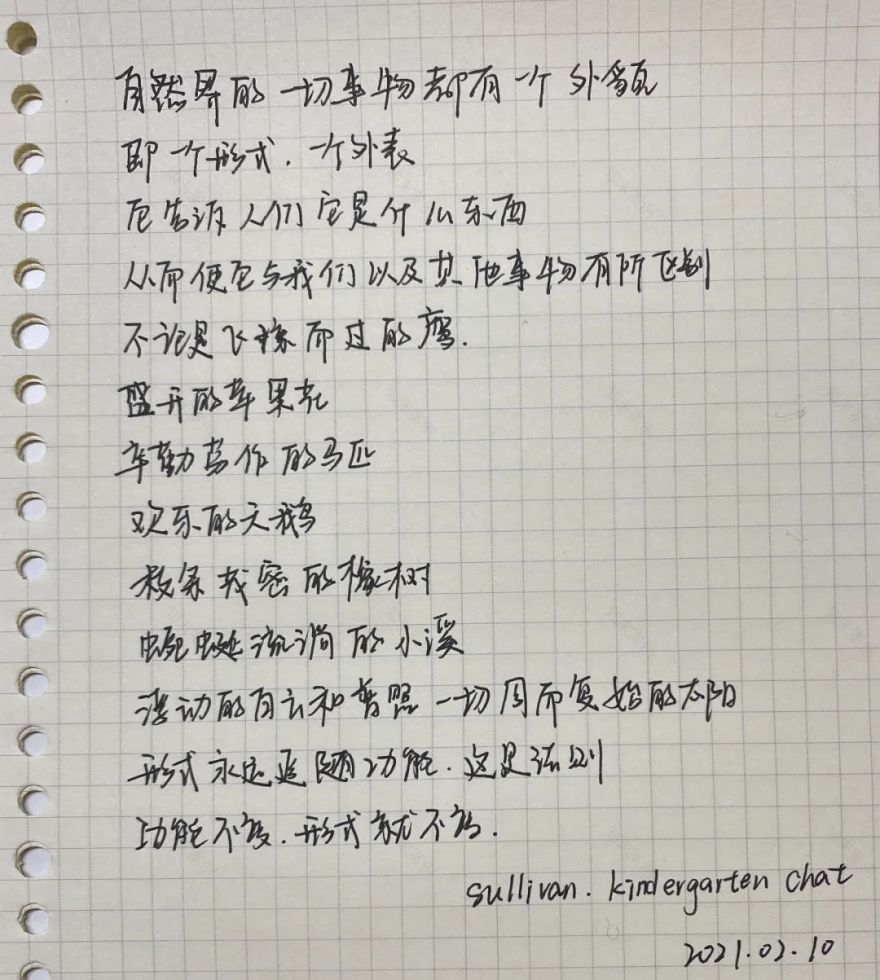 自然界的一切事物都有一个外貌
即一个形式.一个外表
它告诉人们它是什么东西
从而使它与我们以及其他事物有所区别
不论是飞掠而过的鹰.
盛开的苹果花
辛勤劳作的马匹
欢乐的天鹅
枝条茂密的橡树
蜿蜒流淌的小溪
漂动的白云和普照一切周而复始的太阳
形式永远追随功能.这是法则
功能不变.形式就不变.
sullivan. kindergarten chat
2021.02.10